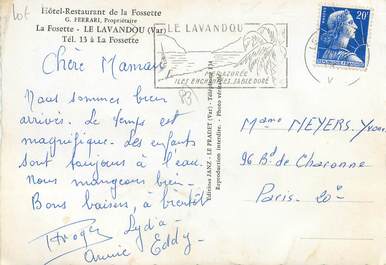 Hôtel-Restaurant de la Fossette
G. FERRARI, Propriétaire
La Fossette - LE LAVANDOU (Var)
Tél. 13 à La Fossette
LE LAVANDOU
MER AZURÉE
ILES ENCHANTÉES, SABLE DORÉ
20F
Chère Maman
Nous sommes bien
arrivés. Le temps est
magnifique. Les enfants
sont toujours à l'eau.
Nous mangeons bien.
Bons baisers, à bientôt
Roger Lydia
Annie Eddy
Editions JANZ - LE PRADET (Var) - Téléphone
Reproduction interdite. - Photo véritable
Mame NEYERS. Yvonne
96 Bd de Charonne
Paris. 20e